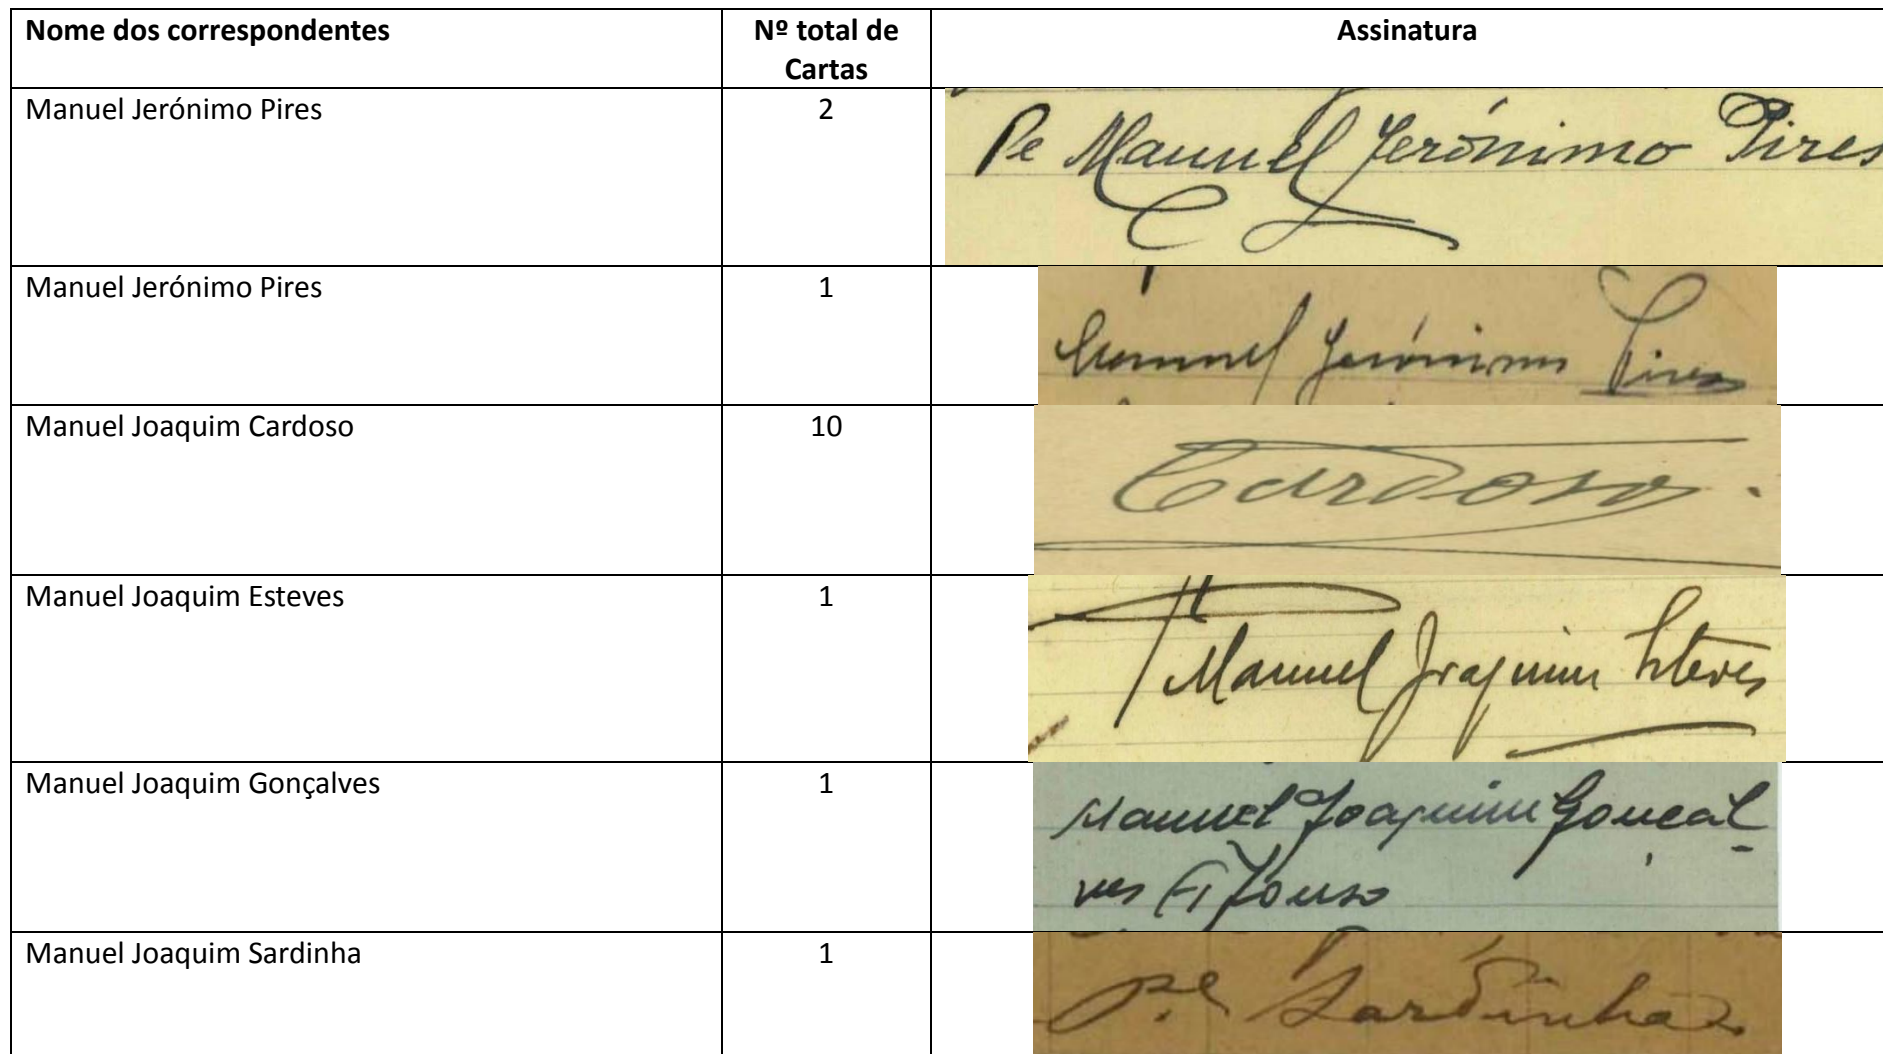 Nome dos correspondentes Nº total de Cartas Assinatura
Manuel Jerónimo Pires 2
Pe Manuel Jerónimo Pires
Manuel Jerónimo Pires 1
Manuel Jerónimo Pires
Manuel Joaquim Cardoso 10
Cardoso.
Manuel Joaquim Esteves 1
Manuel Joaquim Esteves
Manuel Joaquim Gonçalves 1
Manuel Joaquim Gonçal
ves Afonso
Manuel Joaquim Sardinha 1
Pe Sardinha